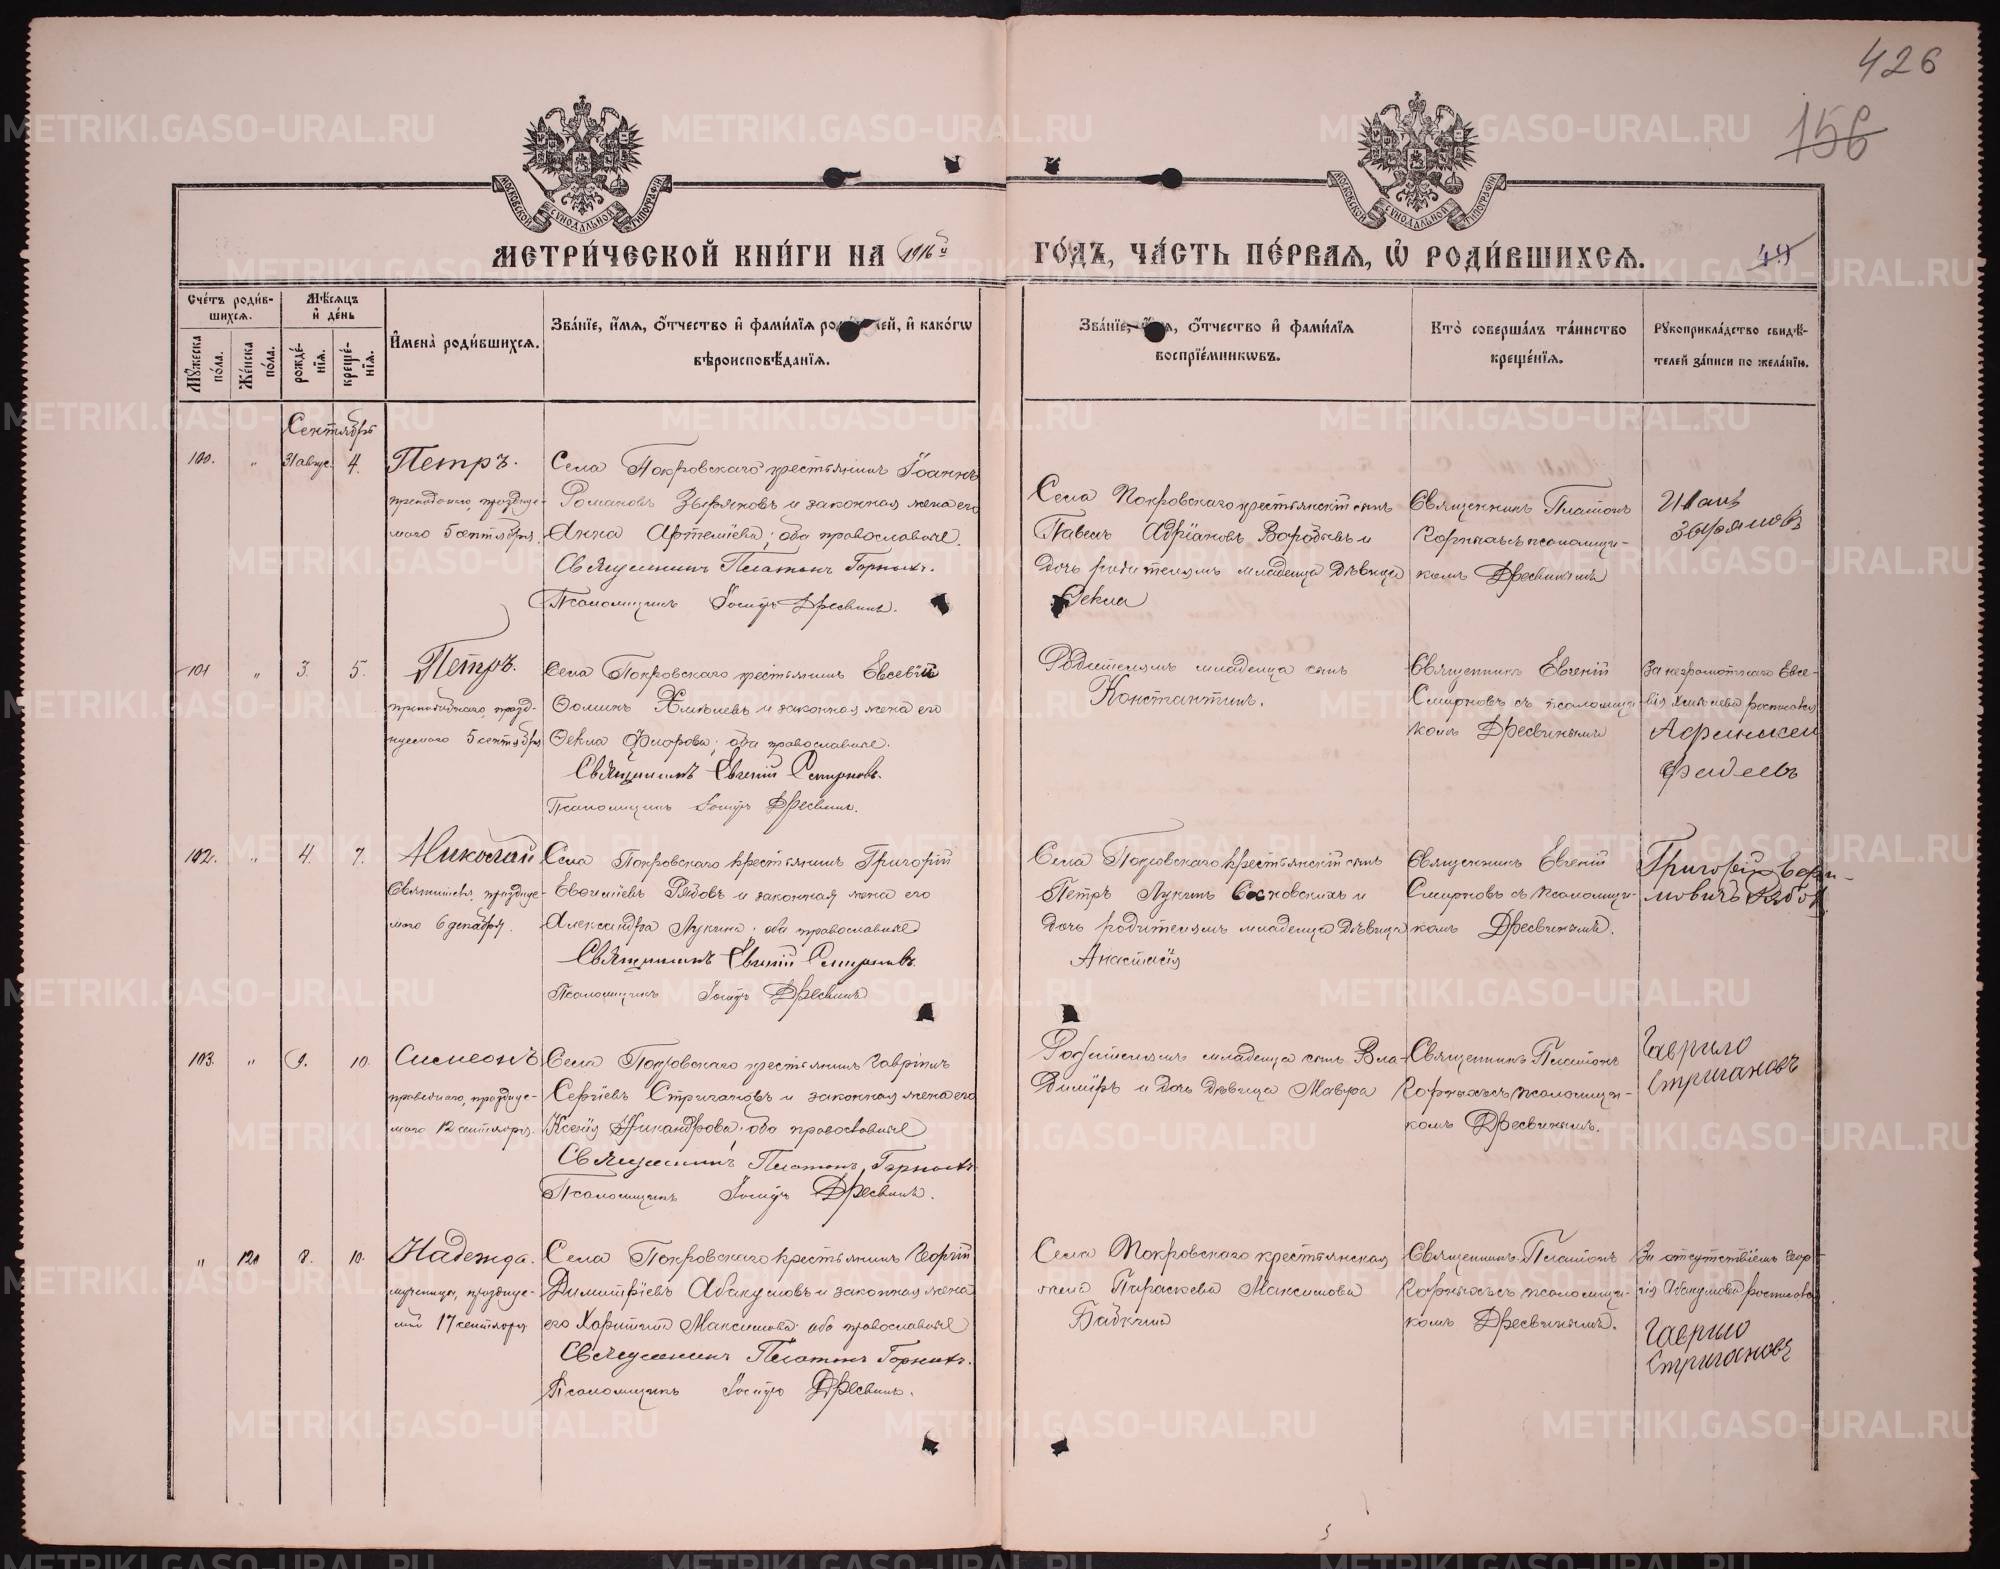 426
156
МОСКОВСКОЙ СУНОДАЛЬНОЙ ТИПОГРАФІИ
МОСКОВСКОЙ СУНОДАЛЬНОЙ ТИПОГРАФІИ
МЕТРИ́ЧЕСКОЙ КНИ́ГИ НА 1916й
ГО́ДЪ, ЧА́СТЬ ПЕ́РВАѦ, Ѡ РОДИ́ВШИХСѦ.
Сче́тъ роди́в-
шихсѧ.
Мѣ́сѧцъ
и де́нь
Му́жеска
по́ла.
Же́нска
по́ла.
рожде́-
нїѧ.
креще́-
нїѧ.
Имена̀ роди́вшихсѧ.
Зва́нїе, и́мѧ, о́тчество и фами́лїѧ роди́телей, и како́гѡ
вѣроисповѣ́данїѧ.
Зва́нїе, и́мѧ, о́тчество и фами́лїѧ
воспрїе́мникѡвъ.
Кто̀ соверша́лъ та́инство
креще́нїѧ.
Рукоприкла́дство свидѣ́-
телей за́писи по жела́нїю.
Сентябрь
100. " 31 авгус. 4. Петръ.
праздну-
маго 5 сентября.
Села Покровскаго крестьянинъ Іоаннъ
Романовъ Зыряновъ и законная жена его
Анна Артеміева; оба православные.
Священникъ Платонъ Горныхъ.
Псаломщикъ Іосифъ Дресвинъ.
Села Покровскаго крестьянскій сынъ
Павелъ Адріановъ Воробьевъ и
дочь родителямъ младенца дѣвица
Ѳекла
Священникъ Платонъ
Горныхъ съ псаломщи-
комъ Дресвинымъ
Иванъ
Зыряновъ
101 " 3. 5. Петръ.
праведнаго, празд-
нуемаго 5 сентября
Села Покровскаго крестьянинъ Евсевій
Ѳоминъ Хмѣлевъ и законная жена его
Ѳекла Флорова; оба православные.
Священникъ Евгеній Смирновъ.
Псаломщикъ Іосифъ Дресвинъ.
Родителямъ младенца сынъ
Константинъ.
Священникъ Евгеній
Смирновъ съ псаломщи-
комъ Дресвинымъ
За неграмотнаго Евсе-
вія Хмѣлева росписался
Фадеевъ
102. " 4. 7. Николай
Святителя, праздну-
маго 6 декабря.
Села Покровскаго крестьянинъ Григорій
Евѳиміевъ Рябовъ и законная жена его
Александра Лукина; оба православные
Священникъ Евгеній Смирновъ.
Псаломщикъ Іосифъ Дресвинъ
Села Покровскаго крестьянскій сынъ
Петръ Лукинъ Сосновскихъ и
дочь родителямъ младенца дѣвица
Анастасія
Священникъ Евгеній
Смирновъ съ псаломщи-
комъ Дресвинымъ.
Григорій Ефи-
мовичъ Рябов
103. " 9. 10. Симеонъ
праведнаго, праздну-
маго 12 сентября.
Села Покровскаго крестьянинъ Гавріилъ
Сергіевъ Стригановъ и законная жена его
Ксенія Никандрова; оба православные
Священникъ Платонъ Горныхъ.
Псаломщикъ Іосифъ Дресвинъ.
Родителямъ младенца сынъ Вла-
диміръ и дочь дѣвица Мавра
Священникъ Платонъ
Горныхъ съ псаломщи-
комъ Дресвинымъ.
Гаврило
Стригановъ
" 121 8. 10. Надежда.
мученицы, праздну-
мой 17 сентября
Села Покровскаго крестьянинъ Георгій
Димитріевъ Абакумовъ и законная жена
его Харитина Максимова; оба православные
Священникъ Платонъ Горныхъ.
Псаломщикъ Іосифъ Дресвинъ.
Села Покровскаго крестьянская
жена Параскева Максимова
Бабкина
Священникъ Платонъ
Горныхъ съ псаломщи-
комъ Дресвинымъ.
За отсутствіемъ Геор-
гія Абакумова росписался
Гаврило
Стригановъ
METRIKI.GASO-URAL.RU